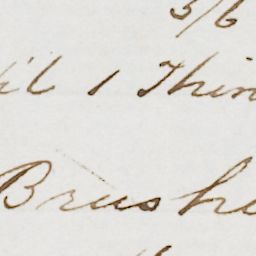 3/6
1 Thin
Brushe